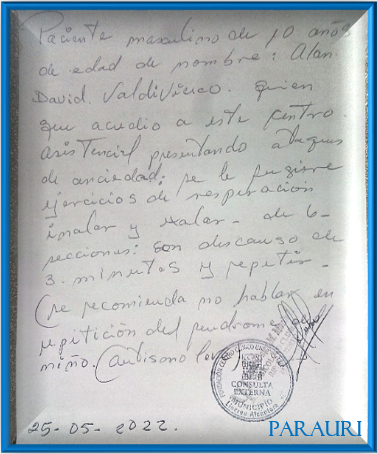 Paciente masculino de 10 años
de edad de nombre: Alan
David Valdivieco. quien
que acudio a este Centro
Asistencial presentando ataques
de anciedad: se le sugiere
ejercicios de respiración
inalar y exalar - de 6
secciones: son descanso de
3. minutos y repetir-
(se recomienda no hablar en
repitición del
niño.
CONSULTA
EXTERNA
MUNICIPIO
25-05-2022.
PARAURI